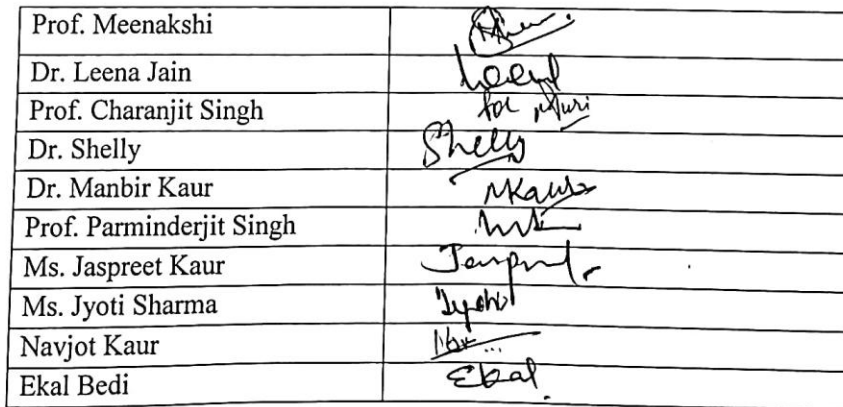 Prof. Meenakshi
Dr. Leena Jain Leena
Prof. Charanjit Singh for
Dr. Shelly Shelly
Dr. Manbir Kaur MKaur
Prof. Parminderjit Singh
Ms. Jaspreet Kaur
Ms. Jyoti Sharma Jyoti
Navjot Kaur
Ekal Bedi Ekal